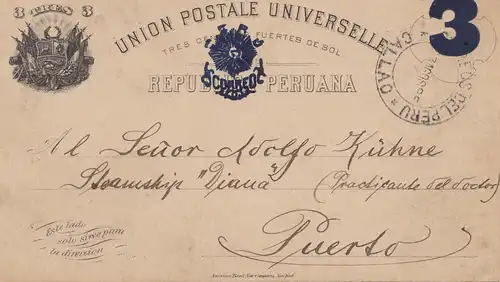 3 TRES 3
UNION POSTALE UNIVERSELLE
3
TRES CENTAVOS FUERTES DE SOL
REPUBLICA PERUANA
CORREOS
DEL PERU
CALLAO
Al Señor Adolfo Kühne
Steamship "Diana" (Practicante del doctor)
Puerto
Este lado
solo sirve para
la direccion
American Bank Note Company, New York